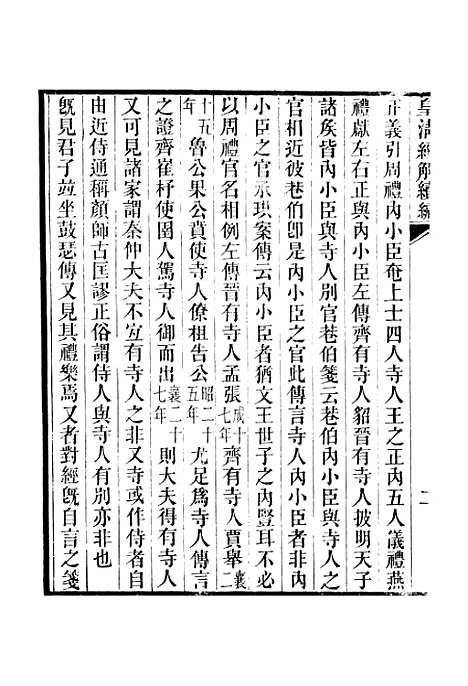 皇清經解續編
二
正義引周禮內小臣奄上士四人寺人王之正內五人儀禮燕
禮獻左右正與內小臣左傳齊有寺人貂晉有寺人披明天子
諸矦皆內小臣與寺人別官巷伯箋云巷伯內小臣與寺人之
官相近彼巷伯卽是內小臣之官此傳言寺人內小臣非內
小臣之官承珙案傳云內小臣者猶文王世子之內豎耳不必
以周禮官名相例左傳晉有寺人孟張成十七年齊有寺人賈舉襄二
十五年魯公果公賁使寺人僚柤告公昭二十五年尤足爲寺人傳言
之證齊崔杼使圉人駕寺人御而出襄二十七年則大夫得有寺人
又可見諸家謂秦仲大夫不宜有寺人之非又寺或作侍者自
由近侍通稱顏師古匡謬正俗謂侍人與寺人有別亦非也
旣見君子竝坐鼓瑟傳又見其禮樂焉又者對經旣自言之箋